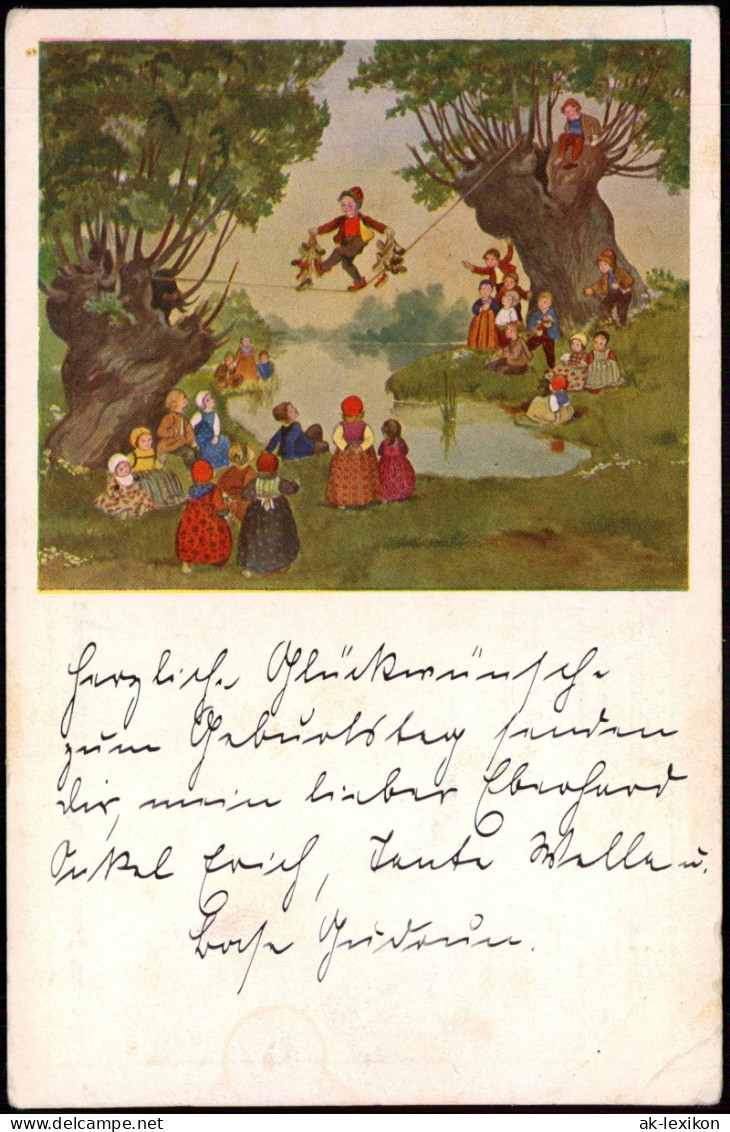 Herzliche Glückwünsche
zum Geburtstag senden
dir, mein lieber Eberhard
Onkel Erich, Tante Welle u.
Base Gudrun.
www.ansichtskarten-lexikon.de
ak-lexikon